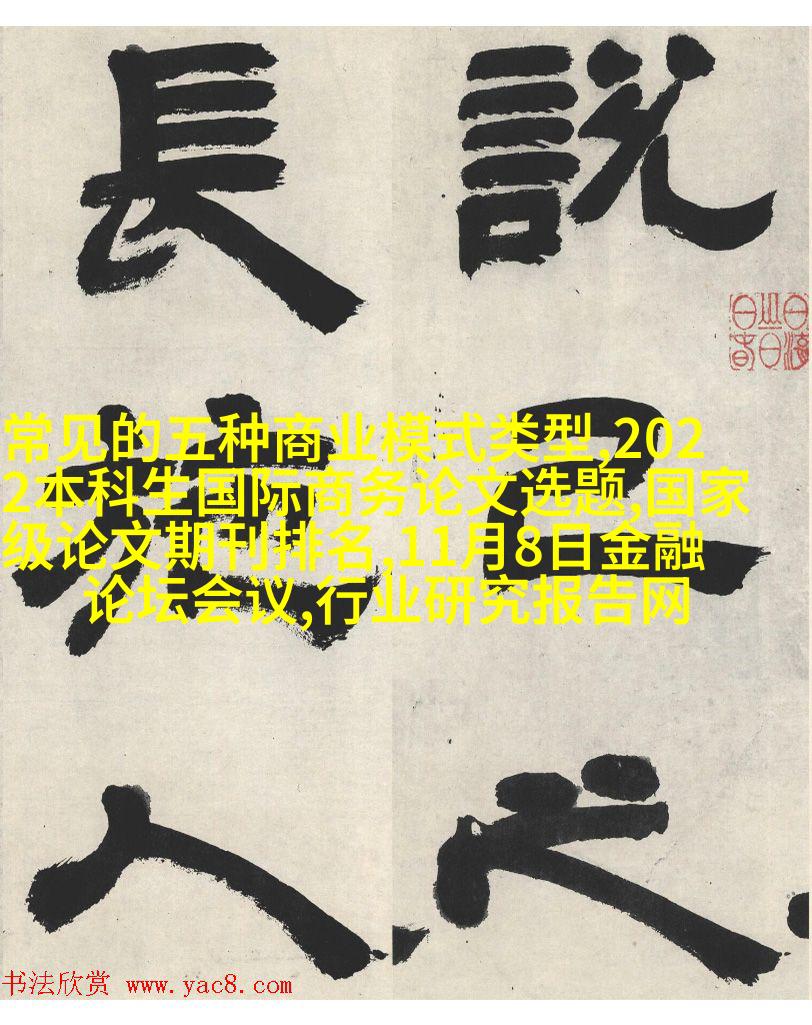 說己之
長施人
常见的五种商业模式类型,202
2本科生国际商务论文选题,国家
级论文期刊排名,11月8日金融
论坛会议,行业研究报告网
书法欣赏 www.yac8.com